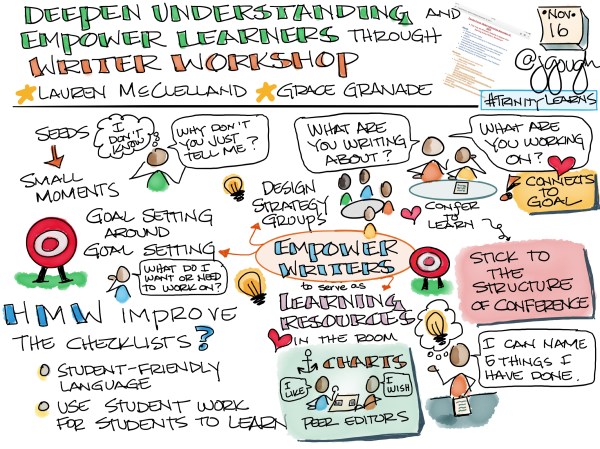 DEEPEN UNDERSTANDING AND
EMPOWER LEARNERS THROUGH
WRITER WORKSHOP
LAUREN MCCLELLAND GRACE GRANADE
NOV.
16
@jgough
#TRINITYLEARNS
SEEDS
I DON'T KNOW
WHY DON'T
YOU JUST
TELL ME?
SMALL
MOMENTS
WHAT ARE
YOU WRITING
ABOUT?
WHAT ARE
YOU WORKING
ON?
DESIGN
STRATEGY
GROUPS
CONFER
TO
LEARN
CONNECTS
TO
GOAL
GOAL SETTING
AROUND
GOAL SETTING
WHAT DO I
WANT OR NEED
TO WORK ON?
EMPOWER
WRITERS
to serve as
LEARNING
RESOURCES
IN THE ROOM
STICK TO
THE
STRUCTURE
OF CONFERENCE
HMW IMPROVE
THE CHECKLISTS?
STUDENT-FRIENDLY
LANGUAGE
USE STUDENT WORK
FOR STUDENTS TO LEARN
CHARTS
I LIKE
I WISH
PEER EDITORS
I CAN NAME
5 THINGS I
HAVE DONE.